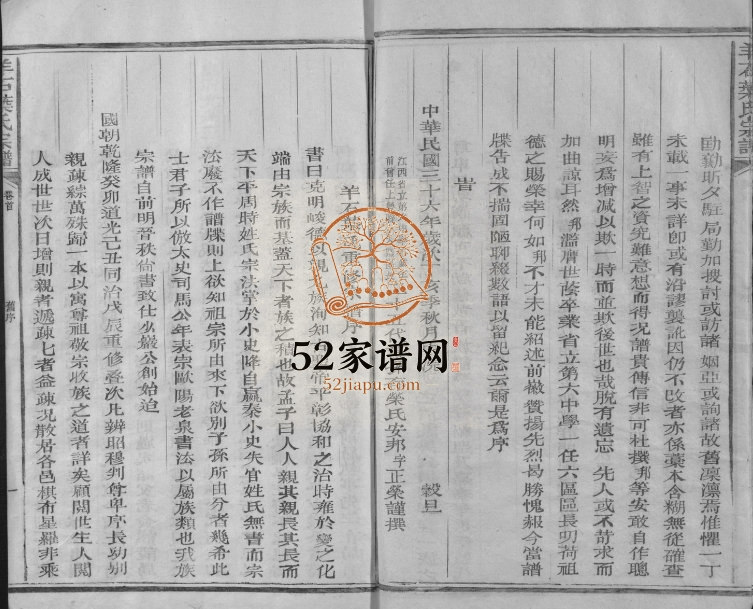 羊石葉氏宗譜
勤勤昕夕駐局勤加搜討或訪諸姻亞或詢諸故舊凜凜焉惟懼一丁
未載一事未詳卽或有沿謬襲訛因仍不改者亦係藁本含糊無從確查
雖有上智之資究難意想而得况譜貴傳信非可杜撰邦等安敢自作聰
明妄爲增減以欺一時而並欺後世也哉脫有遺忘先人或不苛求而
加曲諒耳然邦濫膺世蔭卒業省立第六中學一任六區區長叨荷祖
德之賜榮幸何如邦不才未能紹述前徽贊揚先烈曷勝愧赧今當譜
牒告成不揣固陋聊綴數語以留紀念云爾是爲序
旹
中華民國三十六年歲次
亥季秋月
穀旦
江西省立第
前曾任上
十
代
榮氏安邦字正榮謹撰
羊石葉
重修
序
書曰克明峻德以親九族洵知
帝平彰協和之治時雍於變之化
端由宗族而基蓋天下者族之積也故孟子曰人人親其親長其長而
天下平周時姓氏宗法掌於小史降自嬴秦小史失官姓氏無書而宗
法廢不作譜牒則上欲知祖宗所由來下欲別子孫所由分者幾希此
士君子所以倣太史司馬公年表宗歐陽老泉書法以屬族類也我族
宗譜自前明晉秩尙書致仕公巖公創始迨
國朝乾隆癸卯道光己丑同治戊辰重修叠次凡辨昭穆判尊卑序長幼別
親疎綜萬殊歸一本以寓尊祖敬宗收族之道者詳矣顧閱世生人閱
人成世世次日增則親者遞疎疎者益疎况散居各邑棋布星羅非乘
羊石葉氏宗譜
卷首
舊序
一
52家谱网
52jiapu.com